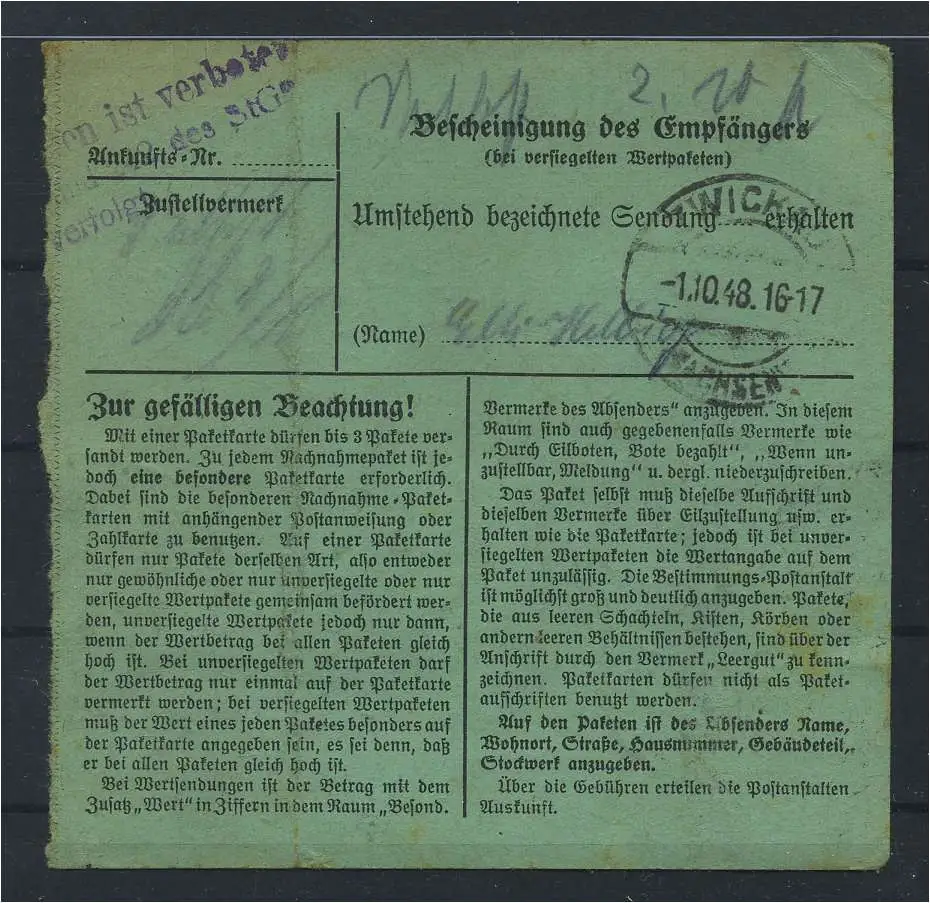 en ist verboten
des StGe
verfolgt
2. 20
Ankunfts-Nr.
Zustellvermerk
Bescheinigung des Empfängers
(bei versiegelten Wertpaketen)
Umstehend bezeichnete Sendung erhalten
ZWICKAU
-1.10.48.16-17
SACHSEN
(Name)
Zur gefälligen Beachtung!
Mit einer Paketkarte dürfen bis 3 Pakete ver-
sandt werden. Zu jedem Nachnahmepaket ist je-
doch eine besondere Paketkarte erforderlich.
Dabei sind die besonderen Nachnahme-Paket-
karten mit anhängender Postanweisung oder
Zahlkarte zu benutzen. Auf einer Paketkarte
dürfen nur Pakete derselben Art, also entweder
nur gewöhnliche oder nur unversiegelte oder nur
versiegelte Wertpakete gemeinsam befördert wer-
den, unversiegelte Wertpakete jedoch nur dann,
wenn der Wertbetrag bei allen Paketen gleich
hoch ist. Bei unversiegelten Wertpaketen darf
der Wertbetrag nur einmal auf der Paketkarte
vermerkt werden; bei versiegelten Wertpaketen
muß der Wert eines jeden Paketes besonders auf
der Paketkarte angegeben sein, es sei denn, daß
er bei allen Paketen gleich hoch ist.
Bei Wertsendungen ist der Betrag mit dem
Zusatz „Wert" in Ziffern in dem Raum „Besond.
Vermerke des Absenders" anzugeben. In diesem
Raum sind auch gegebenenfalls Vermerke wie
„Durch Eilboten, Bote bezahlt", „Wenn un-
zustellbar, Meldung" u. dergl. niederzuschreiben.
Das Paket selbst muß dieselbe Aufschrift und
dieselben Vermerke über Eilzustellung usw. er-
halten wie die Paketkarte; jedoch ist bei unver-
siegelten Wertpaketen die Wertangabe auf dem
Paket unzulässig. Die Bestimmungs-Postanstalt
ist möglichst groß und deutlich anzugeben. Pakete,
die aus leeren Schachteln, Kisten, Körben oder
andern leeren Behältnissen bestehen, sind über der
Anschrift durch den Vermerk „Leergut" zu kenn-
zeichnen. Paketkarten dürfen nicht als Paket-
aufschriften benutzt werden.
Auf den Paketen ist des Absenders Name,
Wohnort, Straße, Hausnummer, Gebäudeteil,
Stockwerk anzugeben.
Über die Gebühren erteilen die Postanstalten
Auskunft.